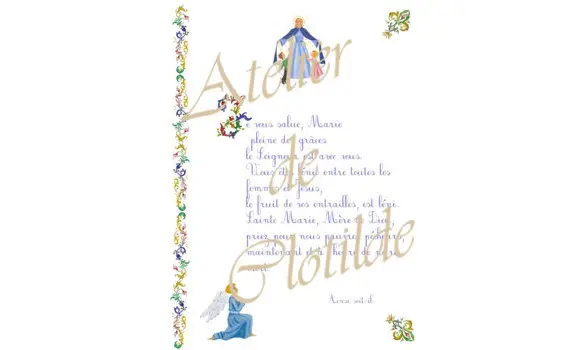 Atelier
de
Clotilde
Je vous salue, Marie
pleine de grâces
le Seigneur est avec vous.
Vous êtes bénie entre toutes les
femmes et Jésus,
le fruit de vos entrailles, est béni.
Sainte Marie, Mère de Dieu,
priez pour nous pauvres pécheurs,
maintenant et à l'heure de notre
mort.
Ainsi soit-il